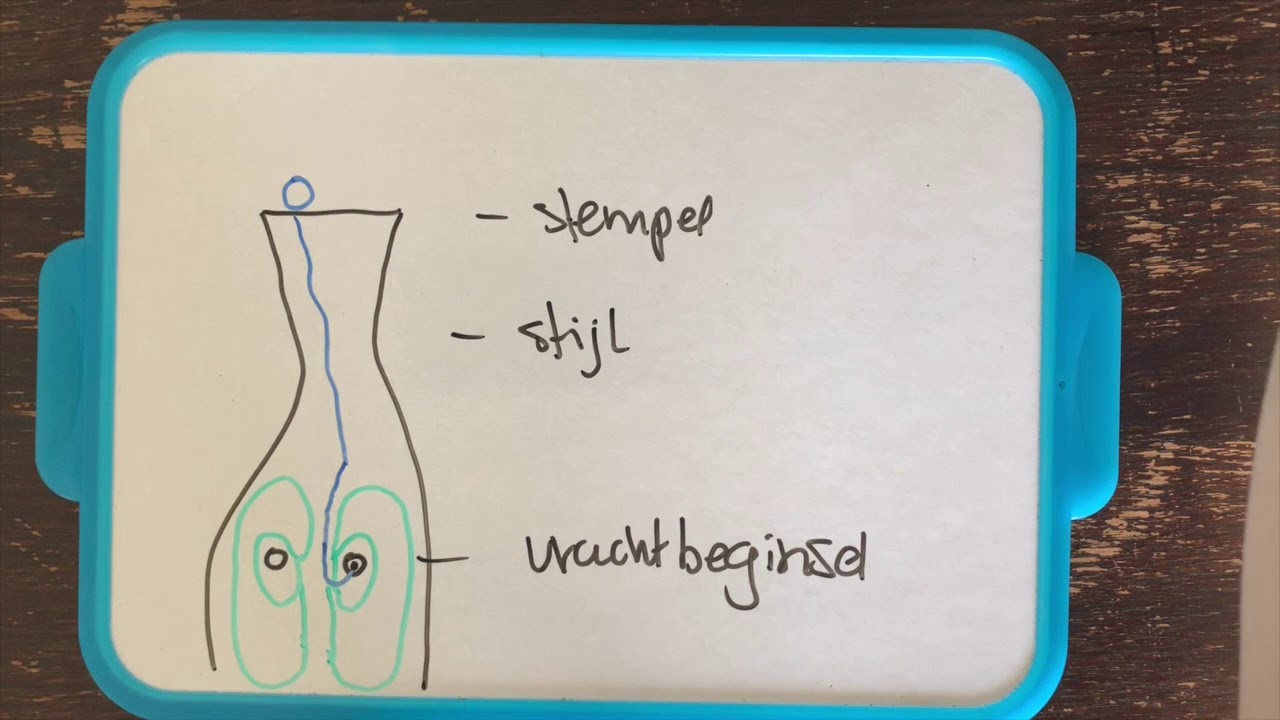 - stempel
- stijl
- vruchtbeginsel